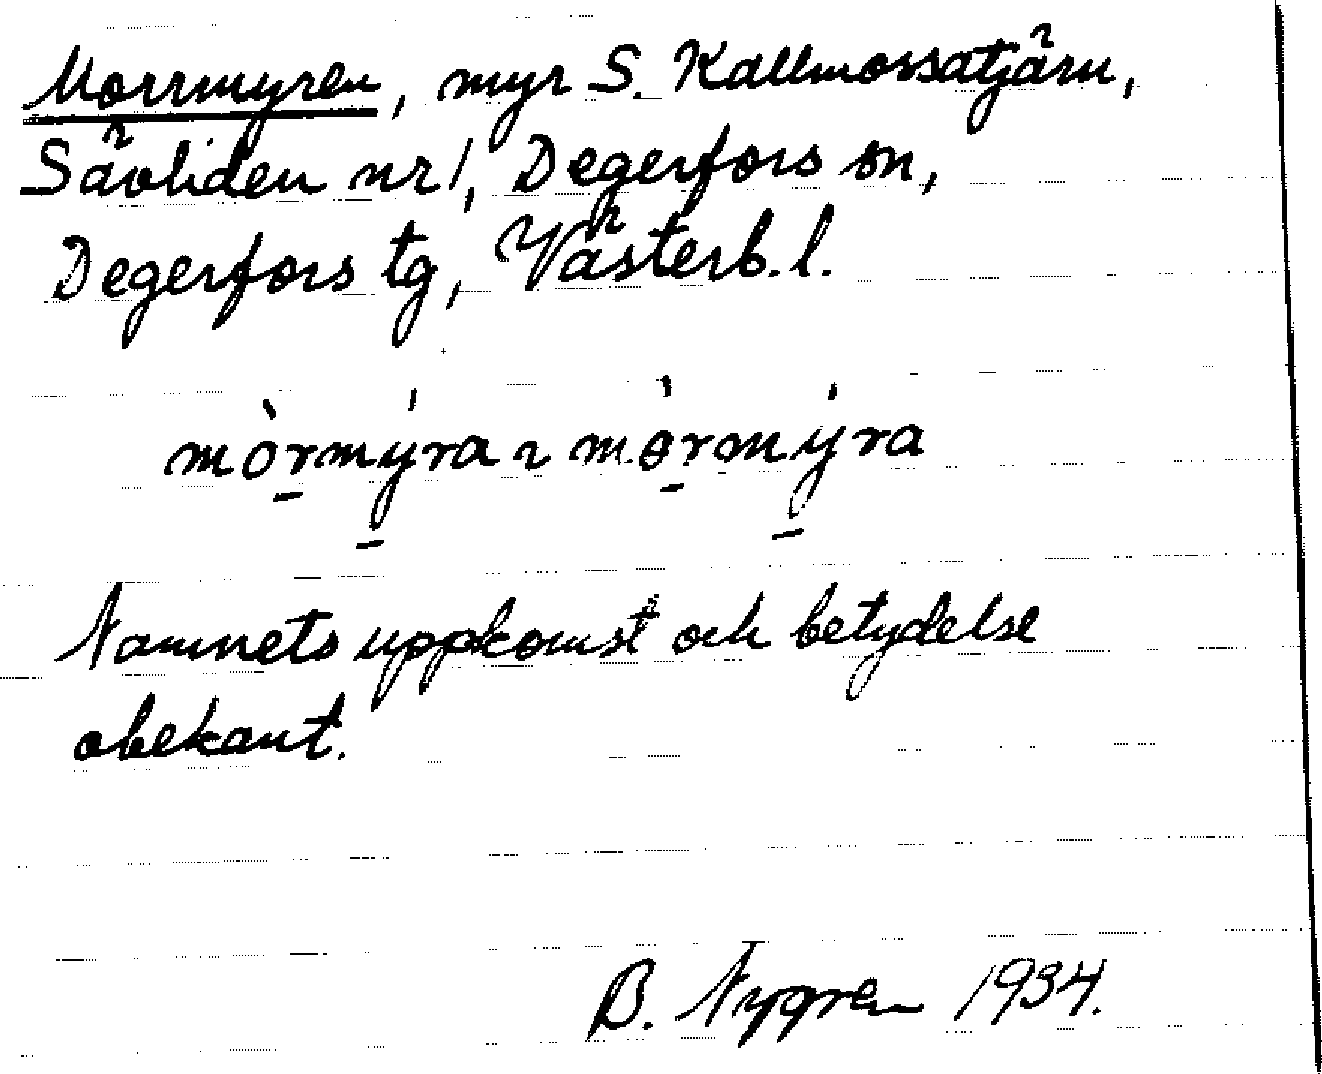 Morrmyren, myr S. Kallmossatjärn,
Sävliden nr 1, Degerfors sn,
Degerfors tg, Västerb. l.
mòrmýra ꝛ mòrmýra
Namnets uppkomst och betydelse
obekant.
B. Nygren 1934.